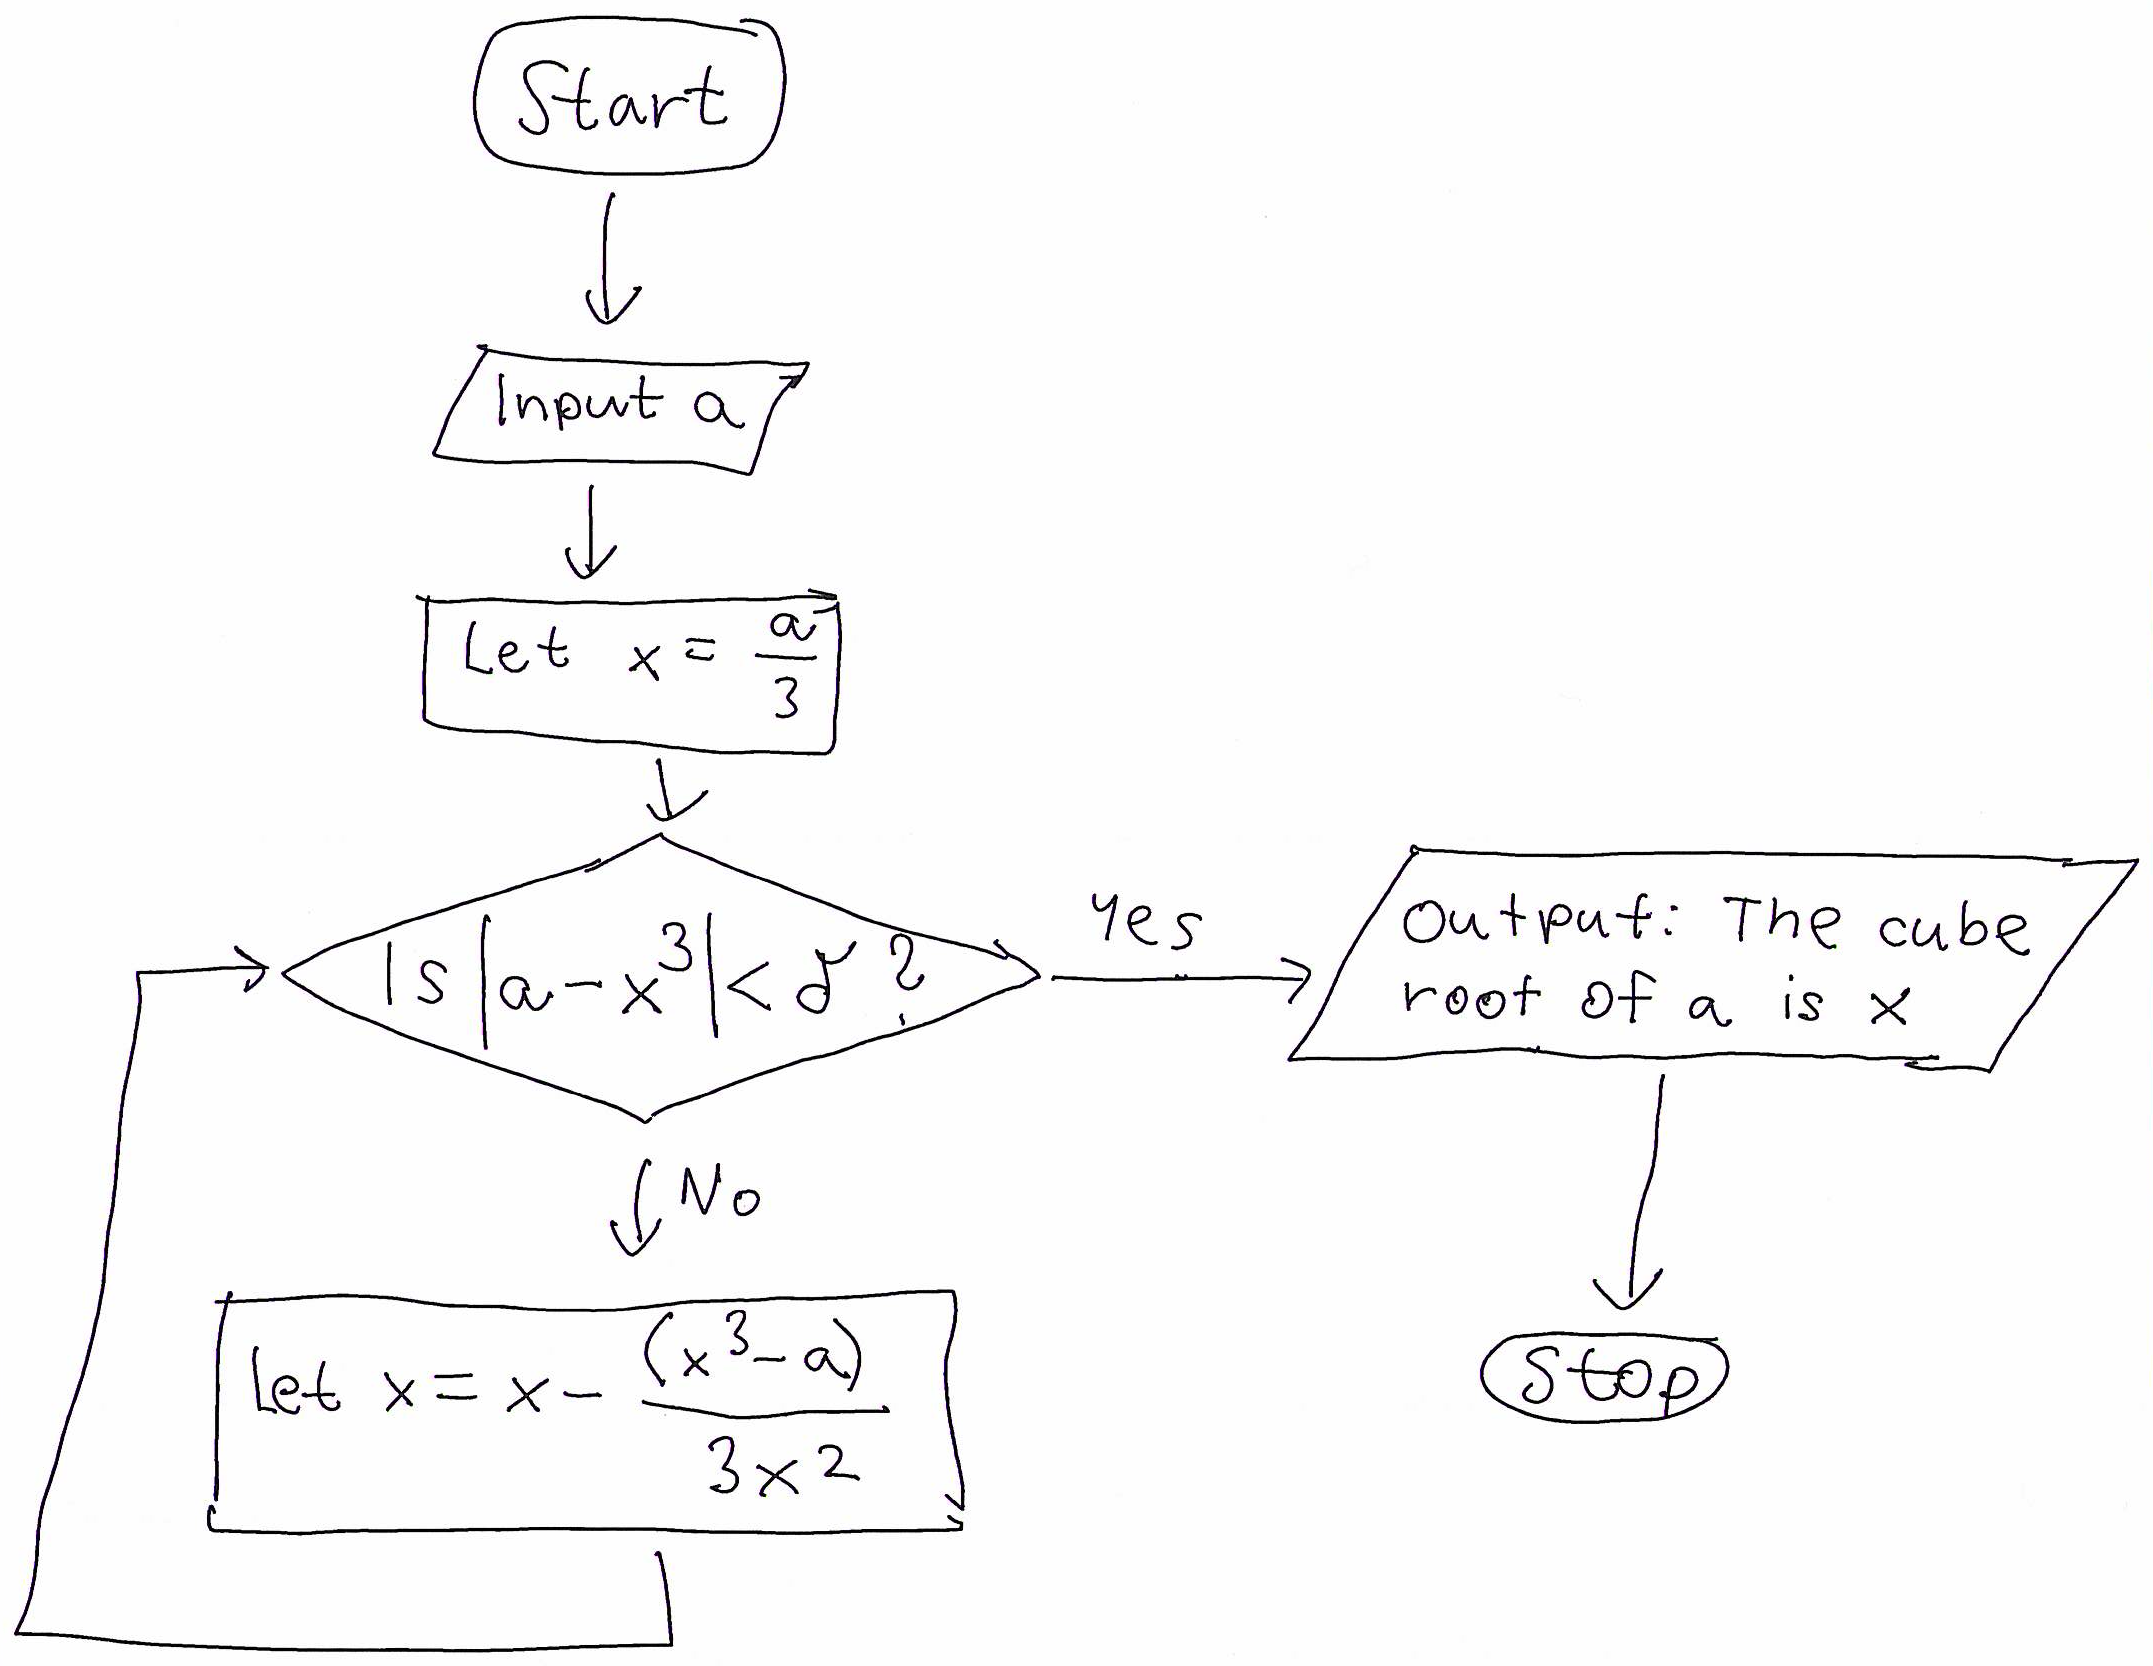 Start
Input a
Let x = a/3
Is |a-x³|< δ ?
Yes
Output: The cube
root of a is x
No
Let x = x - (x³-a)/3x2
Stop